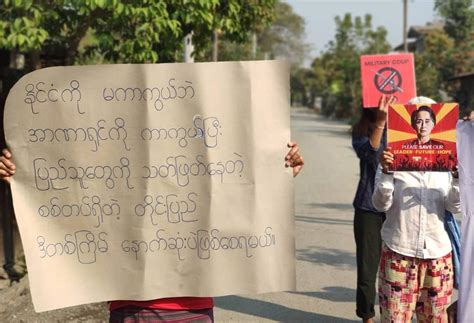 နိုင်ငံကို မကာကွယ်ဘဲ
အာဏာရှင်ကို ကာကွယ်ပြီး
ပြည်သူတွေကို သတ်ဖြတ်နေတဲ့
စစ်တပ်ရှိတဲ့ တိုင်းပြည်
ဒီတစ်ကြိမ် နောက်ဆုံးပဲဖြစ်စေရမယ်။
MILITARY COUP
PLEASE SAVE OUR
LEADER · FUTURE · HOPE